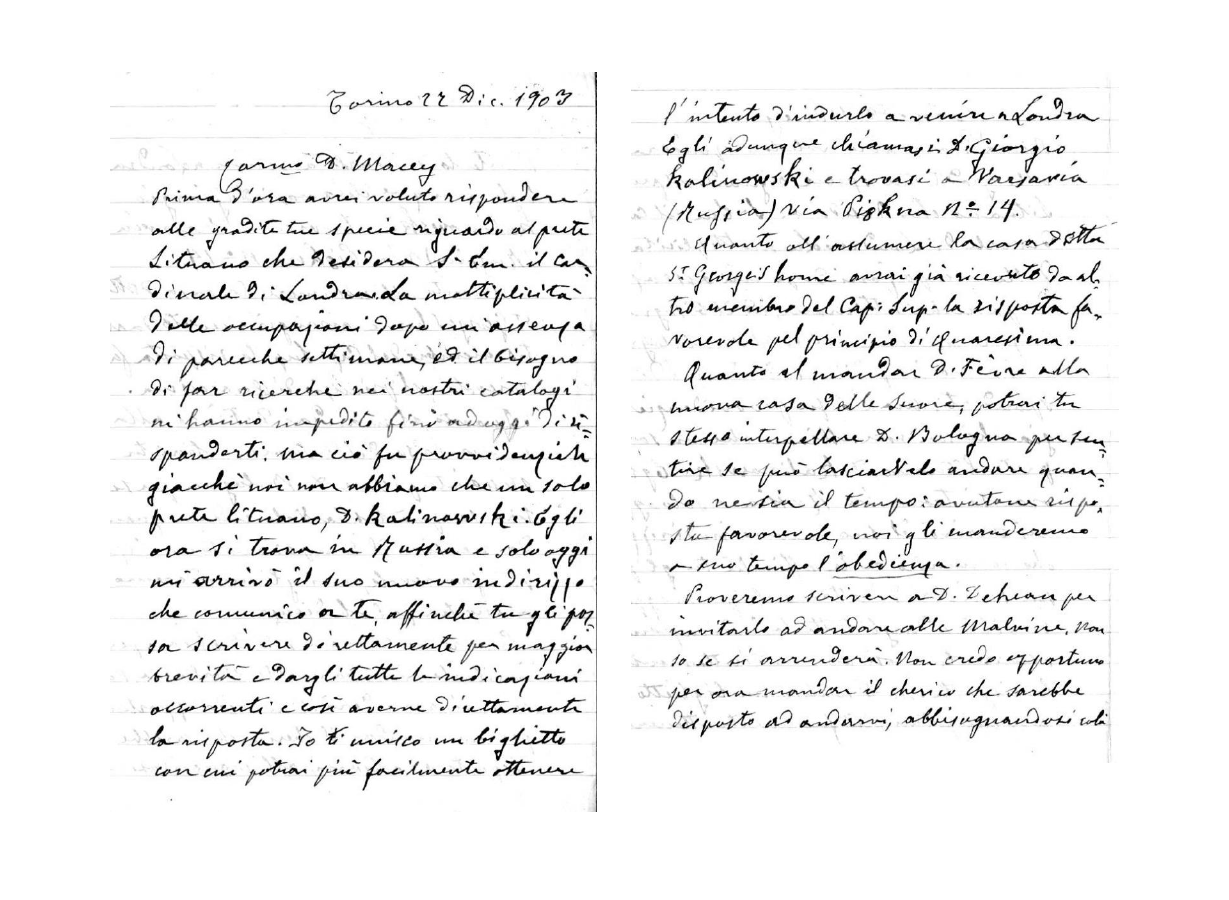 Torino 22 Dic. 1903
Carmo D. Macey
Prima d'ora avrei voluto rispondere
alle gradite tue specie riguardo al prete
Lituano che desidera S. Em. il Car-
dinale di Londra. La moltiplicità
delle occupazioni dopo un'assenza
di parecchie settimane, ed il bisogno
di far ricerche nei nostri catalogi
mi hanno impedito fino ad oggi di ri-
sponderti. ma ciò fu provvidenziale
giacchè noi non abbiamo che un solo
prete lituano, D. Kalinowski. Egli
ora si trova in Russia e solo oggi
mi arrivò il suo nuovo indirizzo
che comunico a te, affinchè tu gli pos-
sa scrivere direttamente per maggior
brevità e dargli tutte le indicazioni
occorrenti e così averne direttamente
la risposta. Io ti unisco un biglietto
con cui potrai più facilmente ottenere
l'intento d'indurlo a venire a Londra
Egli adunque chiamasi D. Giorgio
Kalinowski e trovasi a Varsavia
(Russia) via Piękna N.º 14.
Quanto all'assumere la casa detta
St George's home avrai già ricevuto da al-
tro membro del Cap. Sup. la risposta fa-
vorevole pel principio di Quaresima.
Quanto al mandar D. Fèvre alla
nuova casa delle Suore, potrai tu
stesso interpellare D. Bologna per sen-
tire se può lasciartelo andare quan-
do ne sia il tempo: avutane rispo-
sta favorevole, noi gli manderemo
a suo tempo l'obedienza.
Proveremo scrivere a D. Dehean per
invitarlo ad andare alle Malvine. Non
so se si arrenderà. Non credo opportuno
per ora mandar il cherico che sarebbe
disposto ad andarvi, abbisognandosi colà